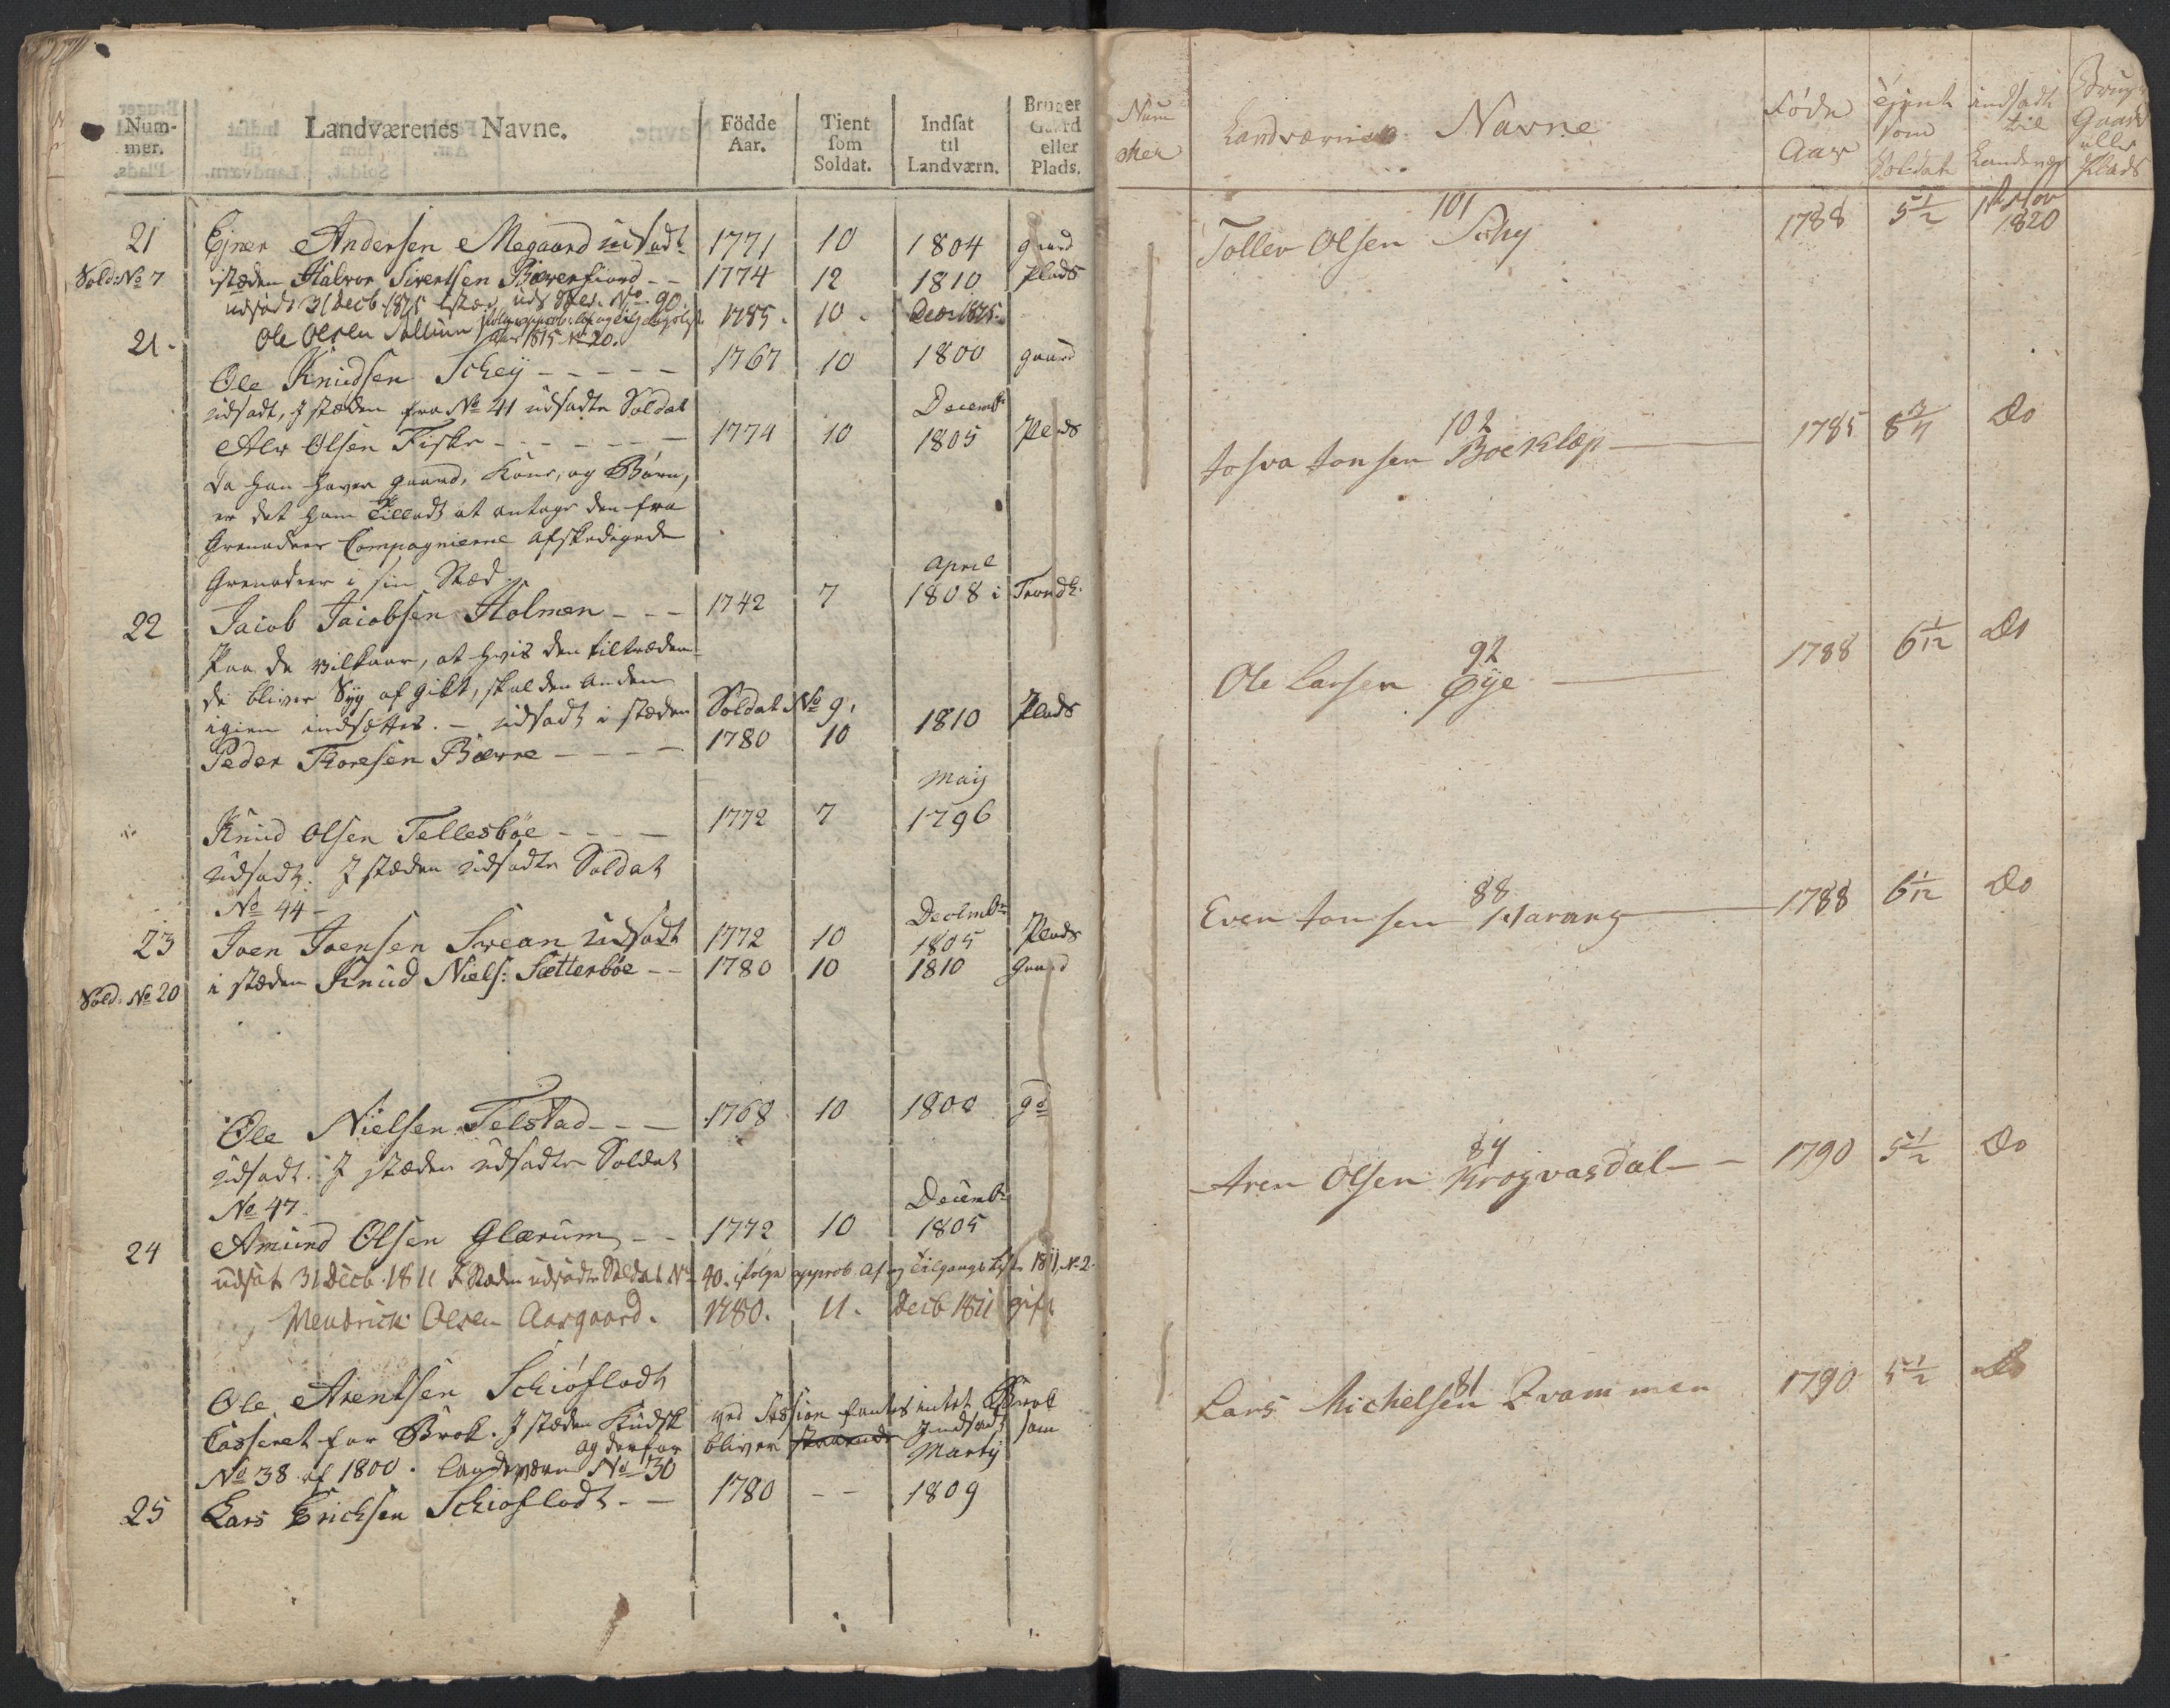 Num-
mer.
Landværenes Navne.
Födde
Aar.
Tient
som
Soldat.
Indsat
til
Landværn.
Bruger
Gaard
eller
Plads.
21 Ejner Andersen Megaard udsadt 1771 10 1804 gaard
Sold: No 7 istæden Halvor Sivertsen Bæverfiord - - 1774 12 1810 Plads
udsadt 31 Decb. 1815 No. 90.
21. Ole Olsen 1785. 10. Decbr 1815.
Aar 1815 No 20.
Ole Knudsen Schey - - - - - 1767 10 1800 gaard
udsadt, I stæden fra No 41 udsadte Soldat
Decembr
Alv Olsen Fiske - - - - - - 1774 10 1805 Plads
da han haver gaard, Kone, og Börn,
er det ham tilladt at antage den fra
Grenadeer Compagnierne afskedigede
Grenadeer i sin Stæd
April
22 Jacob Jacobsen Holmen - - - 1742 7 1808 i Trondh.
Paa de vilkaar, at hvis den tiltræden-
de bliver Syg af gikt, skal den anden
igien indsættes. - udsadt i stæden Soldat No 9,
Peder Thoresen Bævre - - - - 1780 10 1810 Plads
Maij
Knud Olsen Tellesbøe - - - - 1772 7 1796
udsadt. I stæden udsadte Soldat
No 44 -
Decembr
23 Joen Joensen Svean udsadt 1772 10 1805 Plads
Sold: No 20 i stæden Knud Niels: Sætterbøe - - 1780 10 1810 gaard
Ole Nielsen Telstad - - - 1768 10 1800 gd
udsadt. I stæden udsadte Soldat
No 47
Decembr
24 Amund Olsen Glærum - - 1772 10 1805
udsat 31 Decb. 1811 I Stæden udsadte Soldat No 40. ifølge approb. Af og Tilgangs Liste 1811, No 2.
Hendrich Olsen Aasgaard. 1780. 11. Decb 1811 gift
Ole Arentsen Schiøflodt
Casseret for Brok. I stæden Kudsk ved Session fantes intet Brok
og derfor bliver Indsadt som
No 38 af 1800. Landværn No 30 Martij
25 Lars Erichsen Schiøflodt - - 1780 - - 1809
Num
mer
Landværnes Navne
Fødde
Aar
tjent
som
Soldat
indsadt
til
Landvær
Bruger
Gaard
eller
Plads
101
Tollev Olsen Schy 1788 5½ 1820
102
Josva Jonsen Boeklep 1785 8 Do
92
Ole Larsen Øye 1788 6 1/12 Do
88
Even Jonsen Harang 1788 6 1/12 Do
84
Aren Olsen Krogvasdal - - 1790 5½ Do
81
Lars Michelsen Qvammen 1790 5½ Do